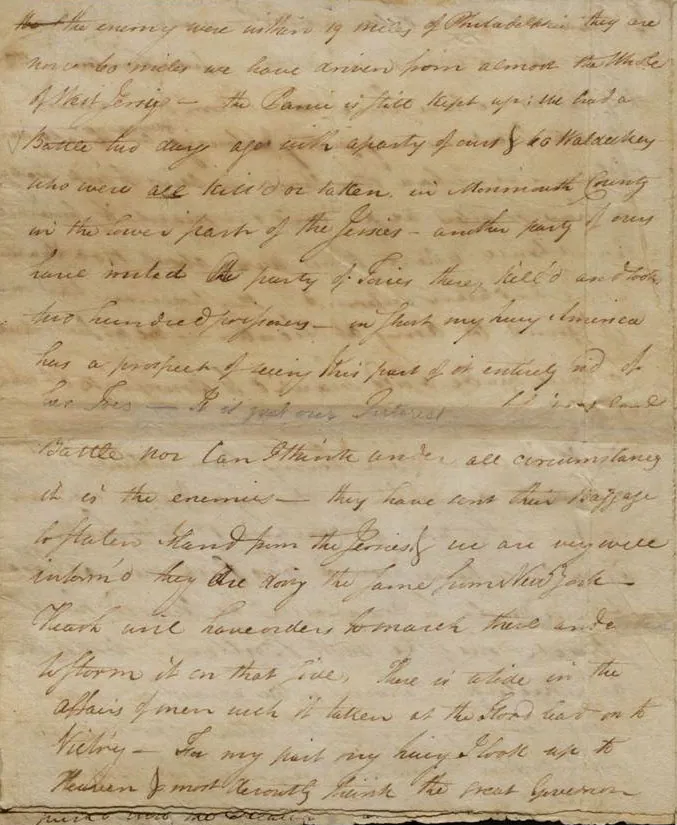 the enemy were within 19 miles of Philadelphia they are
now 60 miles we have driven from almost the Whole
of West Jersey — the Panic is still kept up; we had a
Battle two days ago with a party of ours & 60 Waldeckers
who were all kill'd or taken in Monmouth County
in the lower part of the Jersies — another party of ours
have the party of Tories there, kill'd and took
two hundred prisoners — in short my lucy America
has a prospect of seeing this part of it entirely rid of
her Foes — It is not our Interest
Battle nor Can I think under all circumstances
it is the enemies — they have sent their Baggage
to Staten Island from the Jersies & we are very well
inform'd they are doing the same from New York —
Heath will have orders to march there and
to storm it on that side. There is a tide in the
affairs of men wch if taken at the flood lead on to
Victory — For my part my lucy I look up to
Heaven & most devoutly think the great Governor